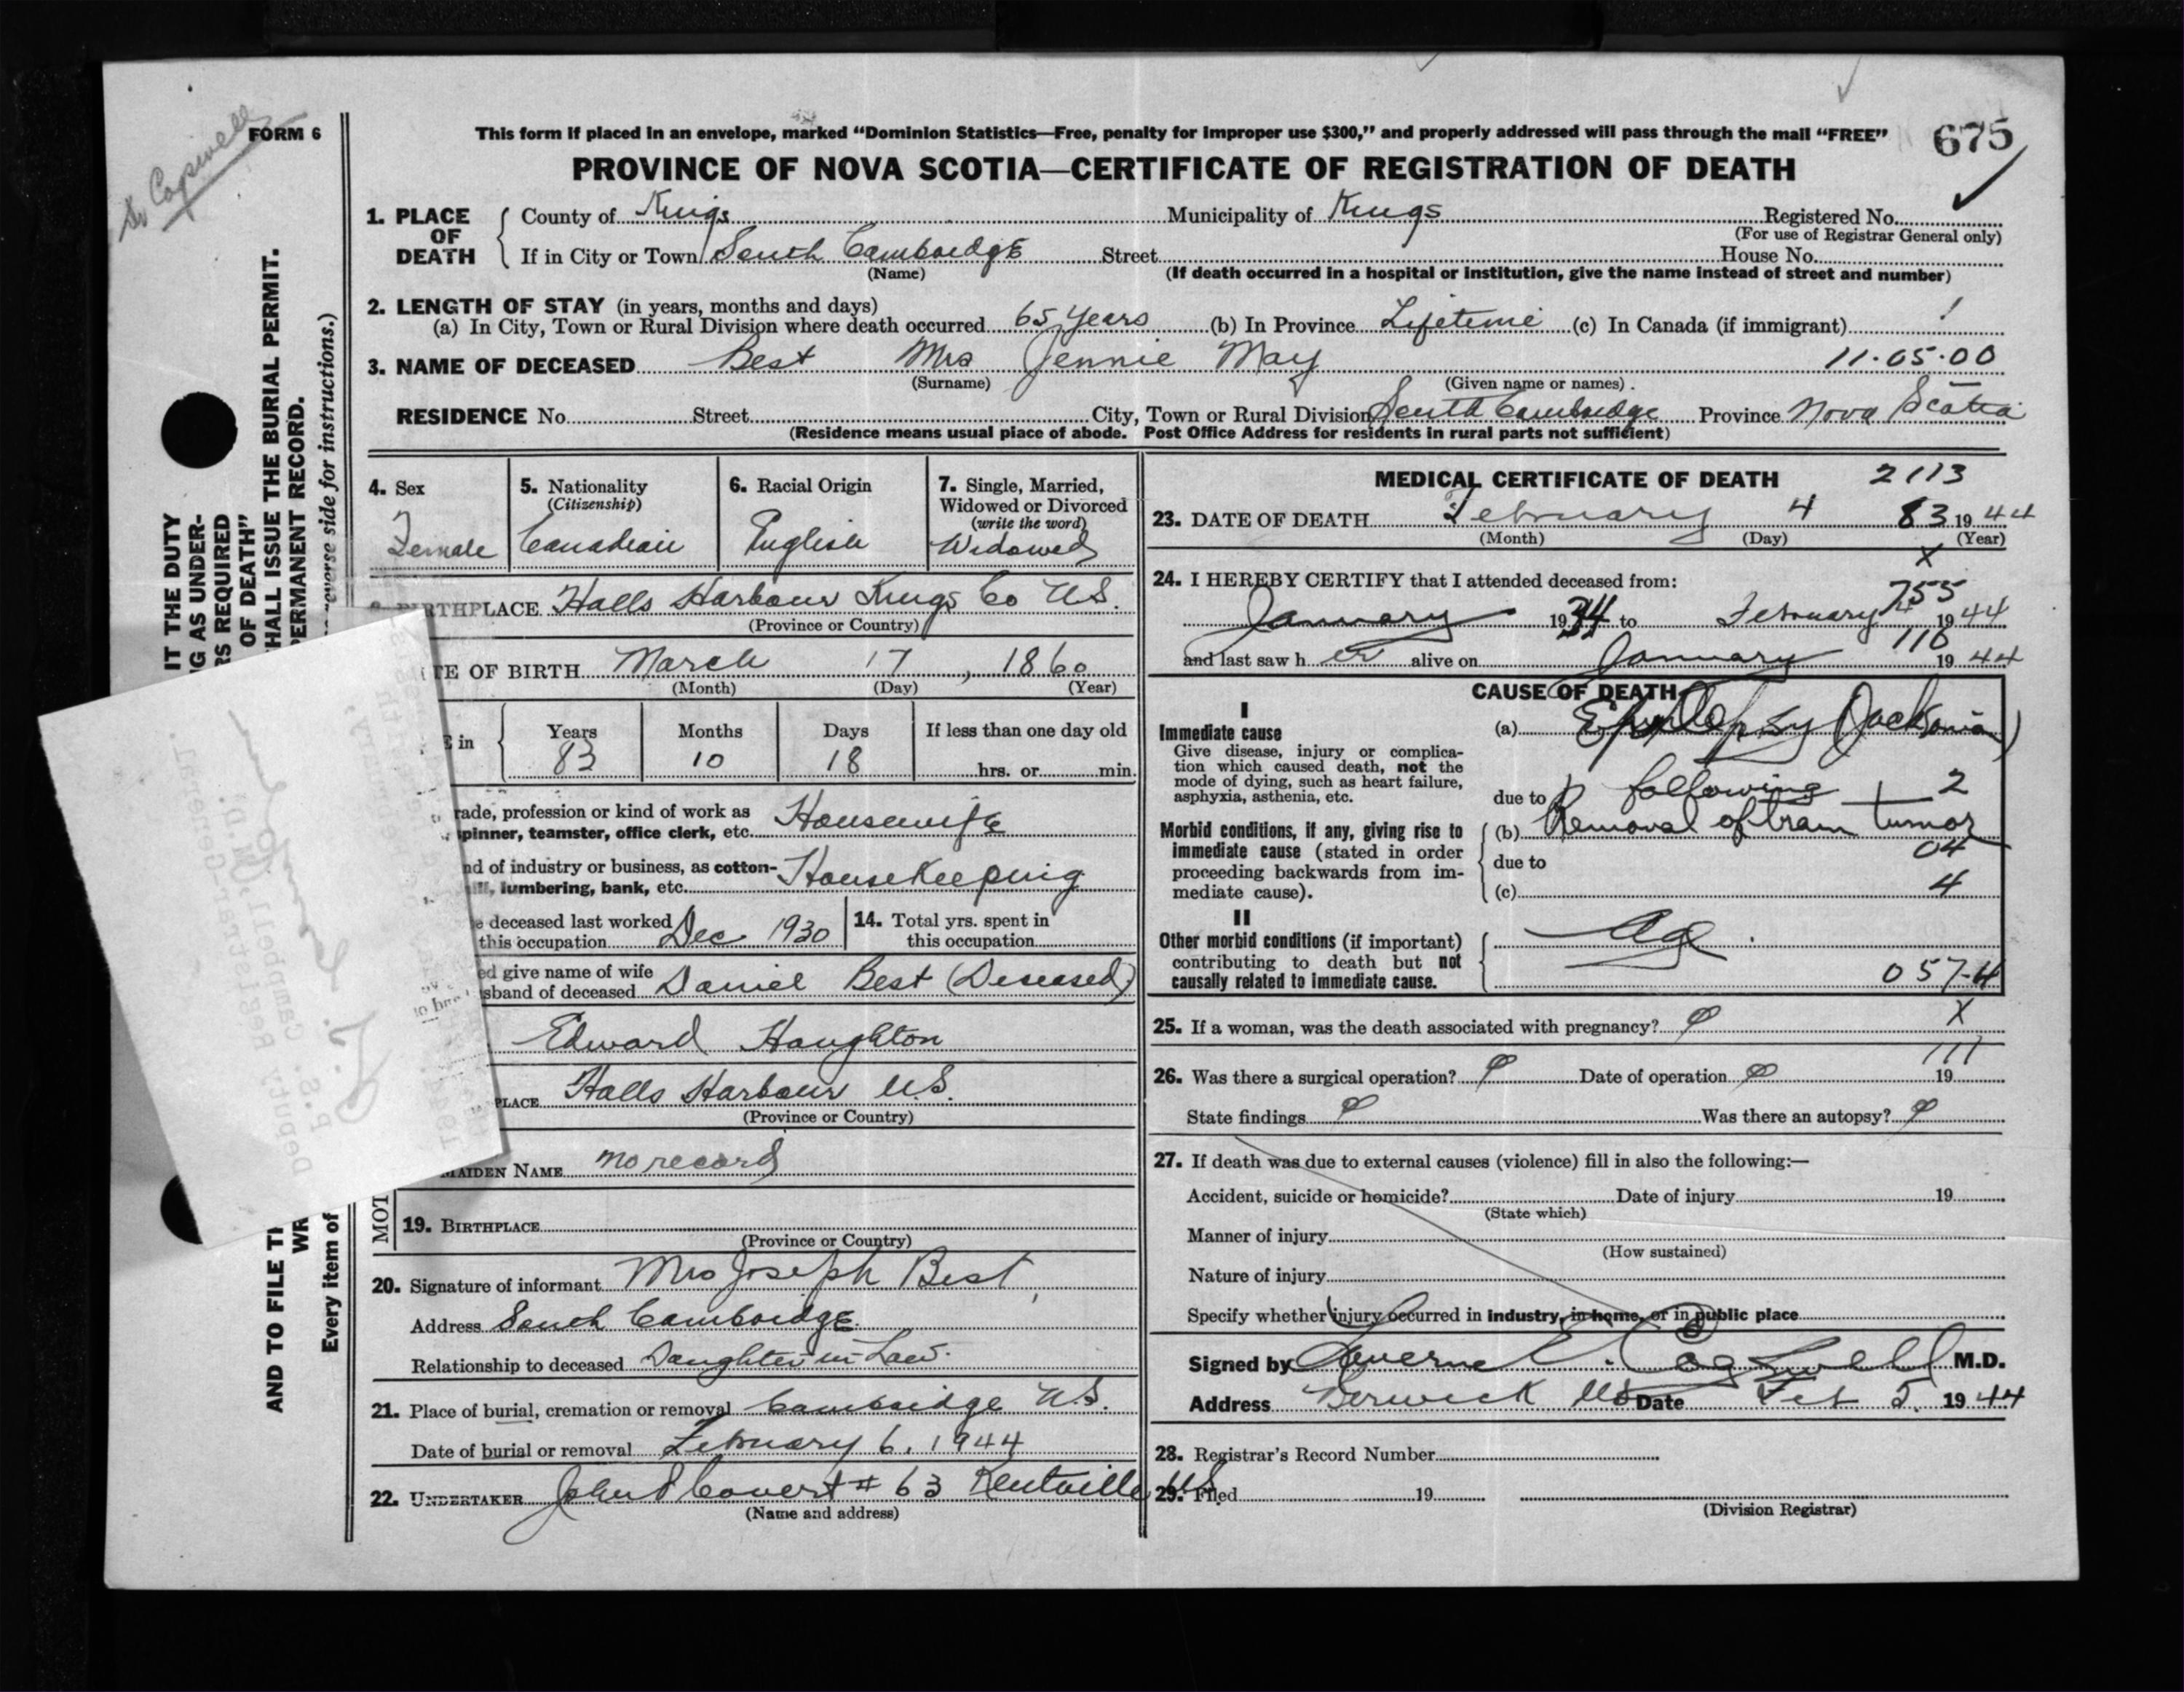 FORM 6
This form if placed in an envelope, marked “Dominion Statistics—Free, penalty for improper use $300,” and properly addressed will pass through the mail “FREE”
675
PROVINCE OF NOVA SCOTIA—CERTIFICATE OF REGISTRATION OF DEATH
1. PLACE OF DEATH
County of Kings Municipality of Kings Registered No.
(For use of Registrar General only)
If in City or Town South Cambridge Street House No.
(Name) (If death occurred in a hospital or institution, give the name instead of street and number)
2. LENGTH OF STAY (in years, months and days)
(a) In City, Town or Rural Division where death occurred 65 years (b) In Province Lifetime (c) In Canada (if immigrant)
3. NAME OF DECEASED Best Mrs Jennie May 11·05·00
(Surname) (Given name or names)
RESIDENCE No. Street City, Town or Rural Division South Cambridge Province Nova Scotia
(Residence means usual place of abode. Post Office Address for residents in rural parts not sufficient)
4. Sex
Female
5. Nationality
(Citizenship)
Canadian
6. Racial Origin
English
7. Single, Married,
Widowed or Divorced
(write the word)
Widowed
BIRTHPLACE Halls Harbour Kings Co N.S.
(Province or Country)
TE OF BIRTH March 17, 1860
(Month) (Day) (Year)
E in Years Months Days If less than one day old
83 10 18 hrs. or min.
rade, profession or kind of work as
spinner, teamster, office clerk, etc. Housewife
nd of industry or business, as cotton-
mill, lumbering, bank, etc. Housekeeping
e deceased last worked
this occupation Dec 1930
14. Total yrs. spent in
this occupation
ed give name of wife
sband of deceased Daniel Best (Deseased)
Edward Haughton
PLACE Halls Harbour N.S.
(Province or Country)
MAIDEN NAME no record
MOT
19. BIRTHPLACE
(Province or Country)
20. Signature of informant Mrs Joseph Best
Address South Cambridge
Relationship to deceased Daughter in Law.
21. Place of burial, cremation or removal Cambridge N.S.
Date of burial or removal February 6, 1944
22. UNDERTAKER Covert # 63 Kentville N.S.
(Name and address)
MEDICAL CERTIFICATE OF DEATH 2113
23. DATE OF DEATH February 4 83 1944
(Month) (Day) (Year)
X
24. I HEREBY CERTIFY that I attended deceased from:
755
January 1934 to February 4 1944
116
and last saw her alive on January 1944
CAUSE OF DEATH
I
Immediate cause
Give disease, injury or complica-
tion which caused death, not the
mode of dying, such as heart failure,
asphyxia, asthenia, etc.
(a) Epilepsy Jacksonian
due to following 2
Morbid conditions, if any, giving rise to
immediate cause (stated in order
proceeding backwards from im-
mediate cause).
(b) Removal of brain tumor
04
due to
(c) 4
II
Other morbid conditions (if important)
contributing to death but not
causally related to immediate cause.
Age
057-4
25. If a woman, was the death associated with pregnancy? X
111
26. Was there a surgical operation? Date of operation 19
State findings Was there an autopsy?
27. If death was due to external causes (violence) fill in also the following:—
Accident, suicide or homicide? Date of injury 19
(State which)
Manner of injury
(How sustained)
Nature of injury
Specify whether injury occurred in industry, in home, or in public place
Signed by Laverne E. Cogswell M.D.
Address Berwick NS Date Feb 5. 1944
28. Registrar's Record Number
29. Filed 19
(Division Registrar)
IT THE DUTY
G AS UNDER-
RS REQUIRED
OF DEATH”
HALL ISSUE THE BURIAL PERMIT.
PERMANENT RECORD.
reverse side for instructions.)
AND TO FILE TH
WR
Every item of
P. S. Campbell, M.D.
Deputy Registrar-General.